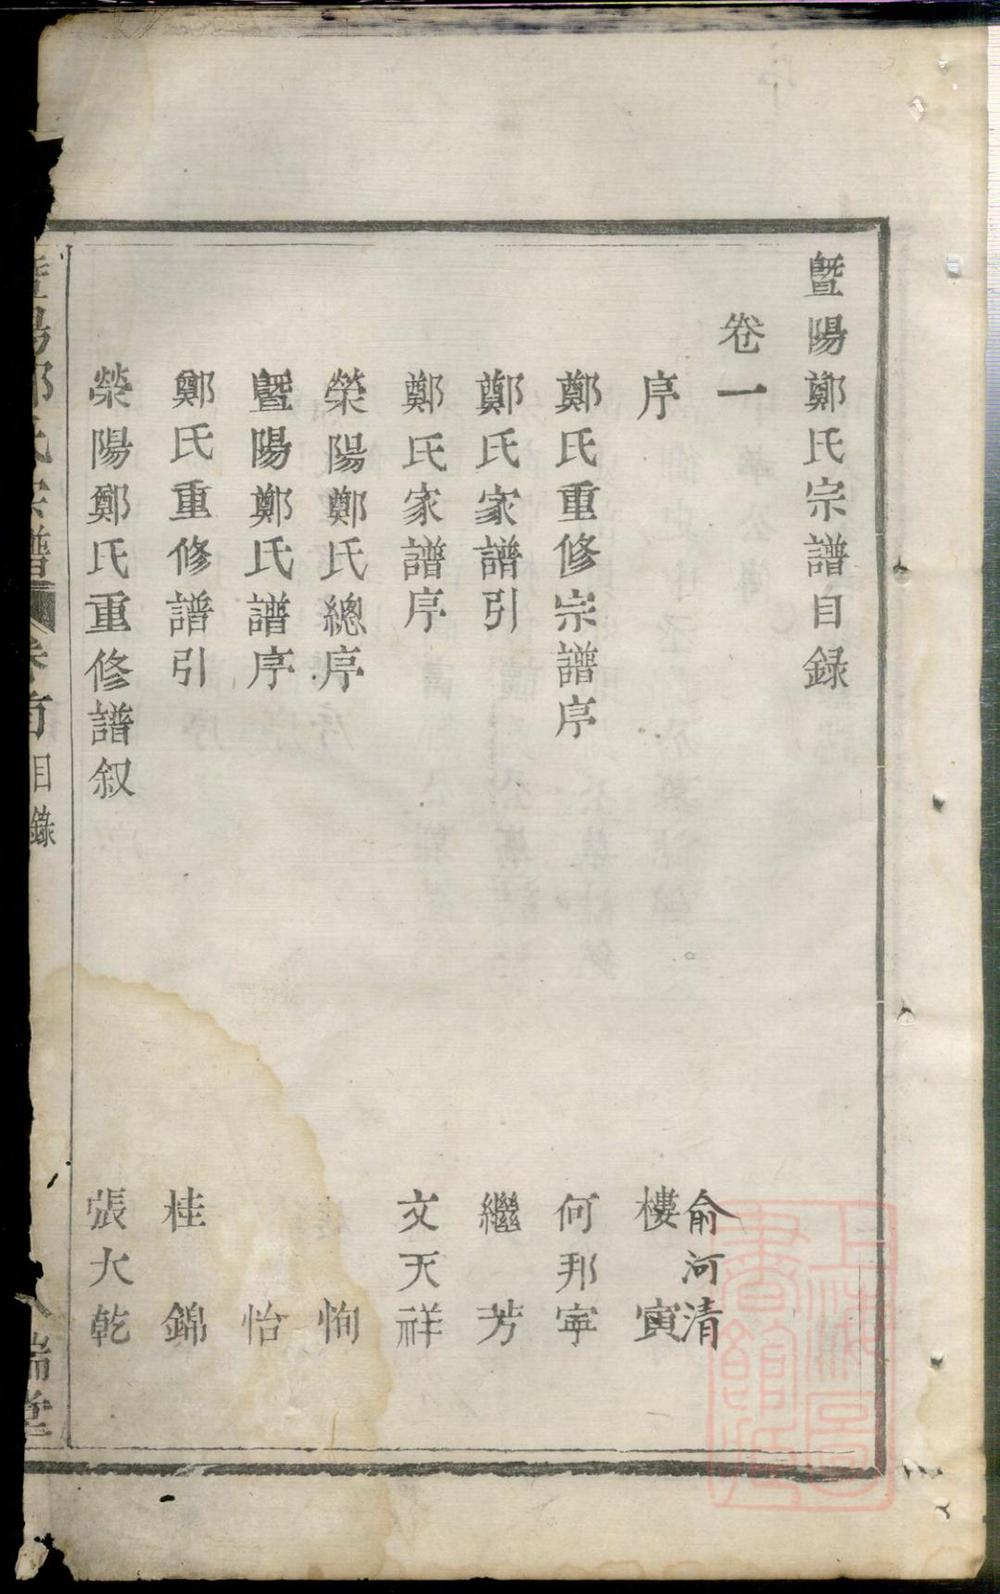 暨陽鄭氏宗譜目錄
卷一
序 俞河清
樓寅
鄭氏重修宗譜序 何邦寧
鄭氏家譜引 繼芳
鄭氏家譜序 文天祥
滎陽鄭氏總序 恂
暨陽鄭氏譜序 怡
鄭氏重修譜引 桂錦
滎陽鄭氏重修譜叙 張大乾
暨陽鄭氏宗譜 卷首 目錄
瑞堂